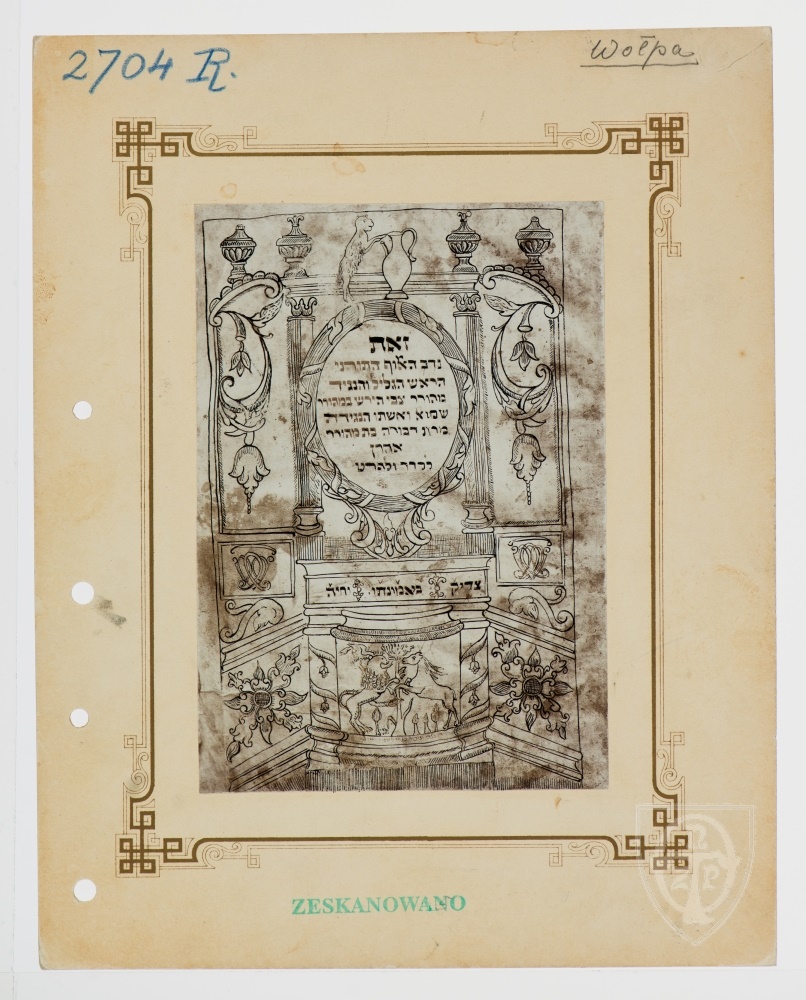 2704 R.
Wołpa
זאת
נדב האלוף התורני
הראש הגליל והנגיד
מהורר צבי הירש במהורר
שמוא ואשתו הנגידה
מרת דבורה בת מהורר
אהרן
לסדר ולפרט
צדיק באמונתו יחיה
ZESKANOWANO